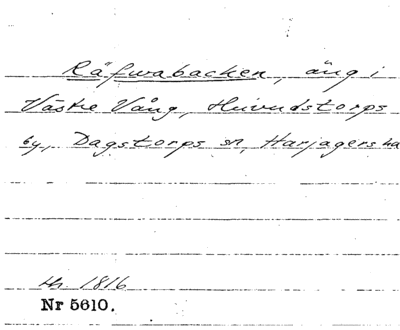 Räfwabacken, äng i
Västre Vång, Huvudstorps
by, Dagstorps sn, Harjagers hd
H. 1816
Nr 5610.